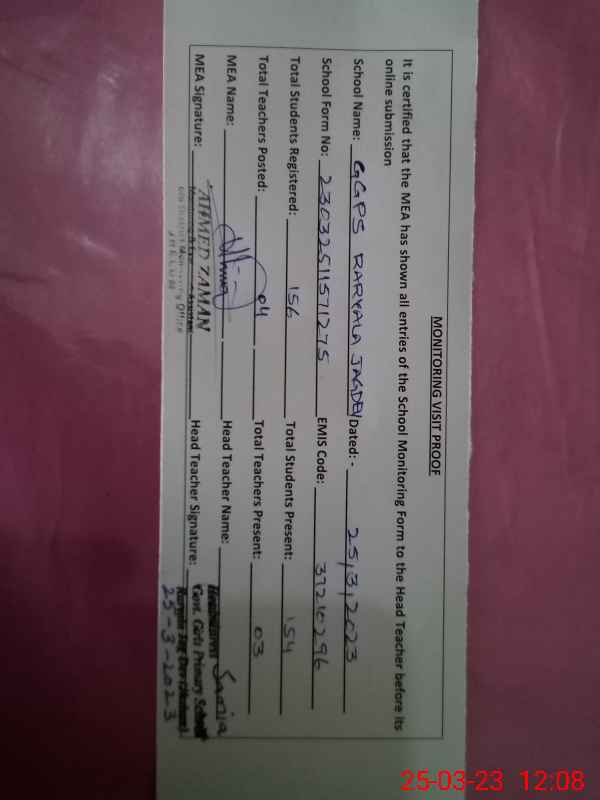 MONITORING VISIT PROOF
It is certified that the MEA has shown all entries of the School Monitoring Form to the Head Teacher before its
online submission
School Name: GGPS RARYALA JAGDEV Dated: - 25/3/2023
School Form No: 23032511571275 EMIS Code: 37210296
Total Students Registered: 156 Total Students Present: 154
Total Teachers Posted: 04 Total Teachers Present: 03
MEA Name: Head Teacher Name: Sania
MEA Signature: AHMED ZAMAN Head Teacher Signature: Headmistress
Govt. Girls Primary School
Monitoring Office
JHELUM
25-3-2023
25-03-23 12:08